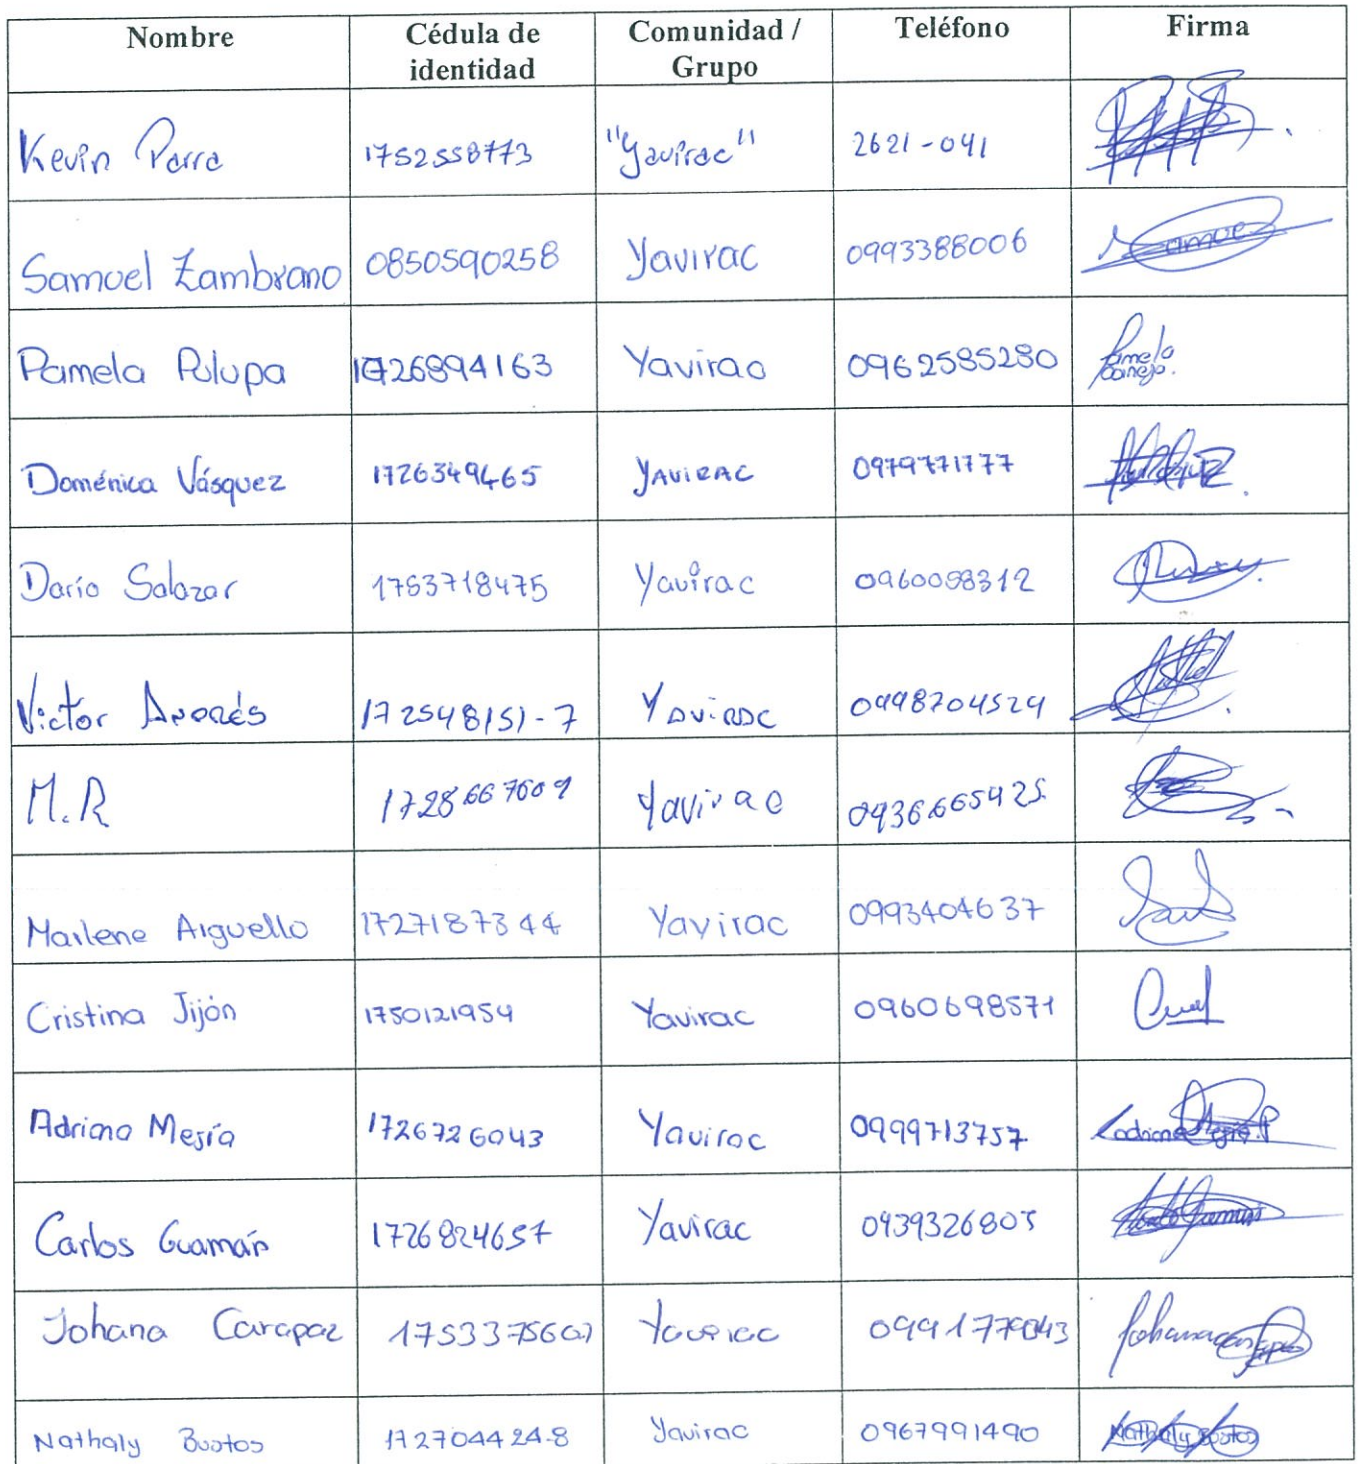 Nombre Cédula de identidad Comunidad / Grupo Teléfono Firma
Kevin Parra 1752558773 "Yavirac" 2621-041
Samuel Zambrano 0850590258 Yavirac 0993388006 Samuel
Pamela Pulupa 1726894163 Yavirac 0962585280 Pamela
Doménica Vásquez 1726349465 YAVIRAC 0979771777
Darío Salazar 1753718475 Yavirac 0960058312
Victor Andrés 172548151-7 Yavirac 0998704524
M.R 1728667609 Yavirac 0936665425
Marlene Arguello 1727187344 Yavirac 0993404637
Cristina Jijón 1750121954 Yavirac 0960698571
Adriana Mejía 1726726043 Yavirac 0999713757 Adriana Mejía P
Carlos Guamán 1726824657 Yavirac 0939326805
Johana Carapaz Yavirac Johanacarapaz
Nathaly Bustos 172704424-8 Yavirac 0967991490 Nathaly Bustos